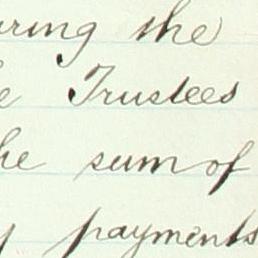 uring the
e Trustees
he sum of
y payments